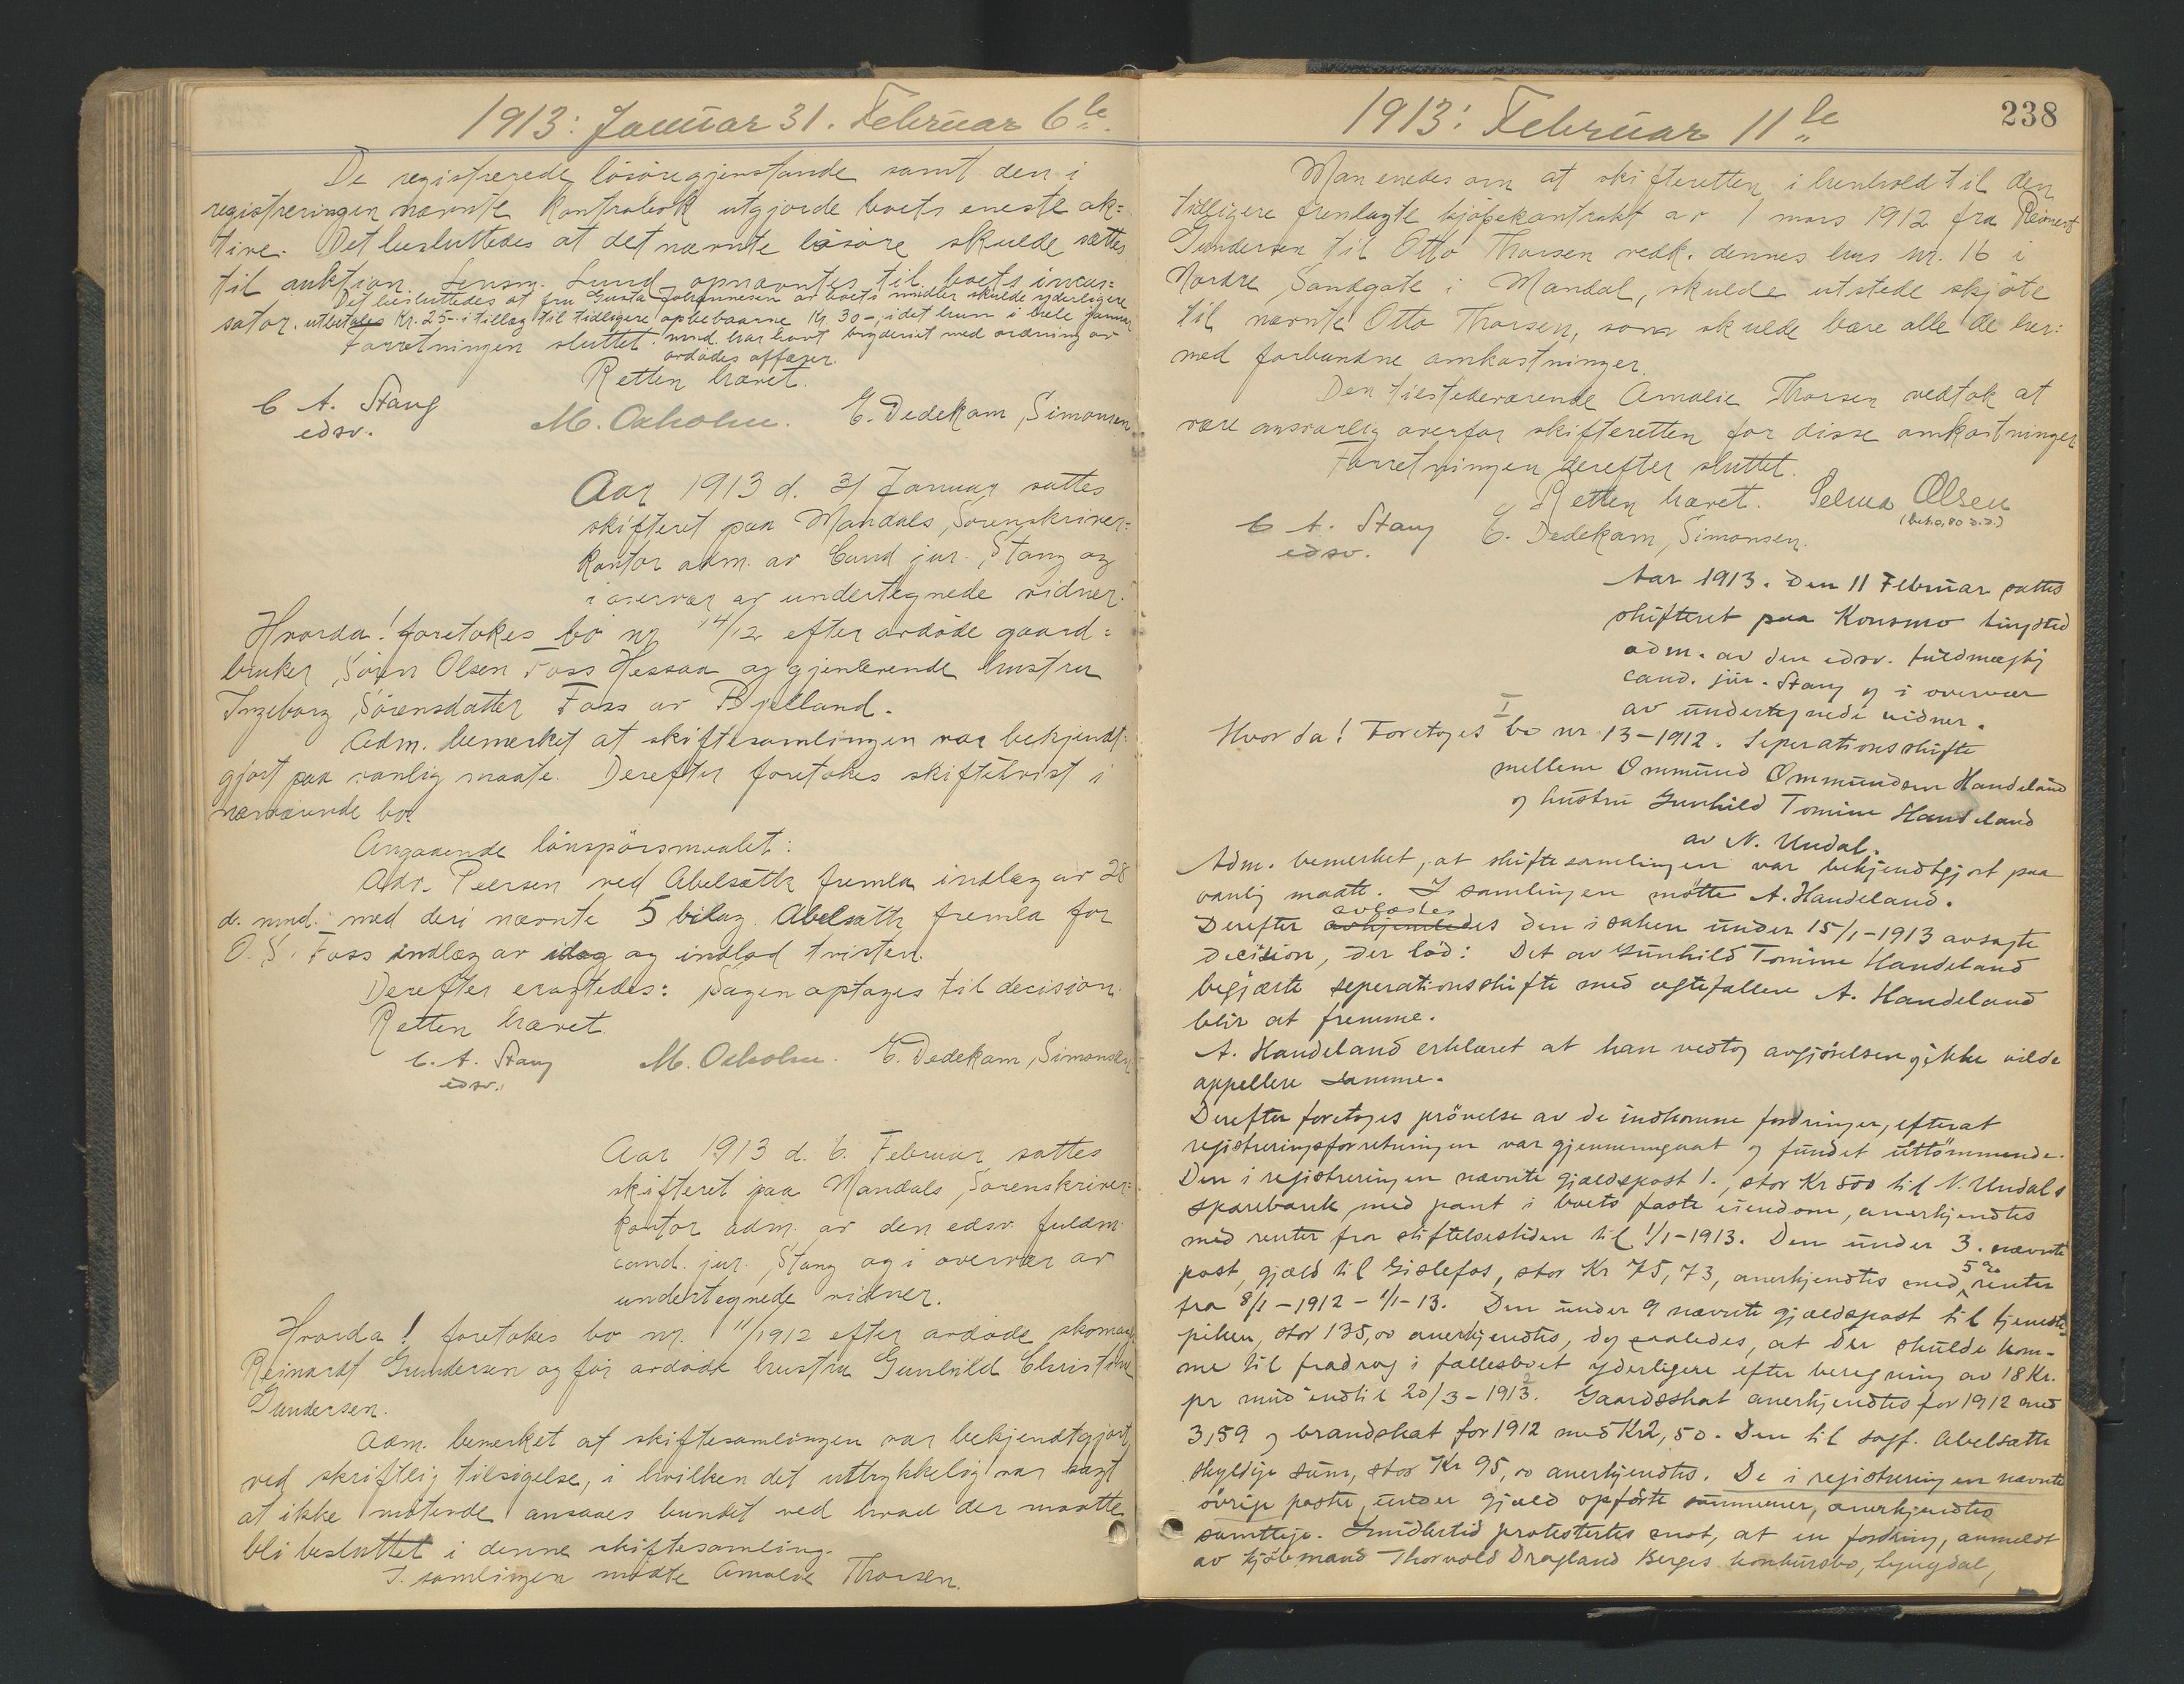 1913: Januar 31. Februar 6te
De registrerede lösöregjenstande samt den i
registreringen nævnte kontrabok utgjorde boets eneste ak-
tiva. Det besluttedes at det nævnte lösöre skulde sættes
til auktion. Lensm. Lund opnævntes til boets incas-
Det besluttedes at fru Gusta Johannesen av boets midler skulde yderligere
sator. utbetales Kr. 25- i tillæg til tidligere opbebaarne Kr. 30-, idet hun i hele januar
Forretningen sluttet. mnd. har havt bryderiet med ordning av
avdödes affærer.
Retten hævet.
C A. Stang
edsv.
M. Oxholm.
E. Dedekam Simonsen
Aar 1913 d. 31 Januar sattes
skifteret paa Mandals Sorenskriver-
kontor adm. av Cand jur. Stang og
i overvær av undertegnede vidner.
Hvorda! foretokes bo nr 14/12 efter avdöde gaard-
bruker Sören Olsen Foss Hessaa og gjenlevende hustru
Ingeborg Sörensdatter Foss av Bjelland.
Adm. bemerket at skiftesamlingen var bekjendt-
gjort paa vanlig maate. Derefter foretokes skiftetvist i
nærværende bo.
Angaaende lönspörsmaalet:
Adv. Peersen ved Abelsæth fremla indlæg av 28
d. mnd. med deri nævnte 5 bilag. Abelsæth fremla for
O. S. Foss indlæg av idag og indlod tvisten.
Derefter eragtedes: Sagen optages til decision.
Retten hævet.
C. A. Stang
edsv.
M. Oxholm.
E. Dedekam Simonsen
Aar 1913 d. 6. Februar sattes
skifteret paa Mandals Sorenskriver-
kontor adm. av den edsv. fuldm.
cand. jur. Stang og i overvær av
undertegnede vidner.
Hvorda! foretokes bo nr. 11/1912 efter avdöde skomag.
Reinardt Gundersen og för avdöde hustru Gunhild Christine
Gundersen.
Adm. bemerket at skiftesamlingen var bekjendtgjort
ved skriftlig tilsigelse, i hvilken det uttrykkelig var sagt
at ikke mötende ansaaes bundet ved hvad der maatte
bli besluttet i denne skiftesamling.
I samlingen mödte Amalie Thorsen.
1913: Februar 11te
238
Man enedes om at skifteretten i henhold til den
tidligere fremlagte kjöpekontrakt av 1 mars 1912 fra Reinert
Gundersen til Otto Thorsen vedk. dennes hus nr. 16 i
Nordre Sandgate i Mandal, skulde utstede skjöte
til nævnte Otto Thorsen, som skulde bære alle de her-
med forbundne omkostninger.
Den tilstedeværende Amalie Thorsen vedtok at
være ansvarlig overfor skifteretten for disse omkostninger.
Forretningen derefter sluttet.
Retten hævet. Selma Olsen
(bet. 0,80 d.d.)
C A. Stang
edsv.
E. Dedekam Simonsen.
Aar 1913. Den 11 Februar sattes
skifteret paa Konsmo tingsted
adm. av den edsv. fuldmægtig
cand. jur. Stang og i overvær
av undertegnede vidner.
I
Hvor da! Foretoges bo nr 13-1912. Seperationsskifte
mellem Ommund Ommundsen Handeland
og hustru Gunhild Tomine Handeland
av N. Undal.
Adm. bemerket, at skiftesamlingen var bekjendtgjort paa
vanlig maate. I samlingen mötte A. Handeland.
avlæstes
Derefter avhjemledes den i saken under 15/1-1913 avsagte
decision, der löd: Det av Gunhild Tomine Handeland
begjærte seperationsskifte med egtefællen A. Handeland
blir at fremme.
A. Handeland erklæret at han vedtog avgjörelsen og ikke vilde
appellere samme.
Derefter foretoges prövelse av de indkomne fordringer, efterat
registreringsforretningen var gjennemgaat og fundet uttömmende.
Den i registreringen nævnte gjældspost 1., stor Kr 500 til N. Undals
sparebank, med pant i boets faste eiendom, anerkjendtes
med renter fra stiftelsestiden til 1/1-1913. Den under 3. nævnte
post, gjæld til Gislefos, stor Kr 75,73, anerkjendtes med 5% renter
fra 8/1-1912 - 1/1-13. Den under 9 nævnte gjældspost til tjeneste-
piken, stor 135,00 anerkjendtes, dog saaledes, at der skulde kom-
me til fradrag i fællesboet yderligere efter beregning av 18 Kr.
pr mnd indtil 20/3-1913. Gaardsskat anerkjendtes for 1912 med
3,59 og brandskat for 1912 med Kr 2,50. Den til sagf. Abelsæth
skyldige sum, stor Kr 95,00 anerkjendtes. De i registreringen nævnte
övrige poster, under gjæld opförte summer, anerkjendtes
samtlige. Imidlertid protestertes mot, at en fordring, anmeldt
av kjöbmand Thorvald Drageland Berges konkursbo, Lyngdal,